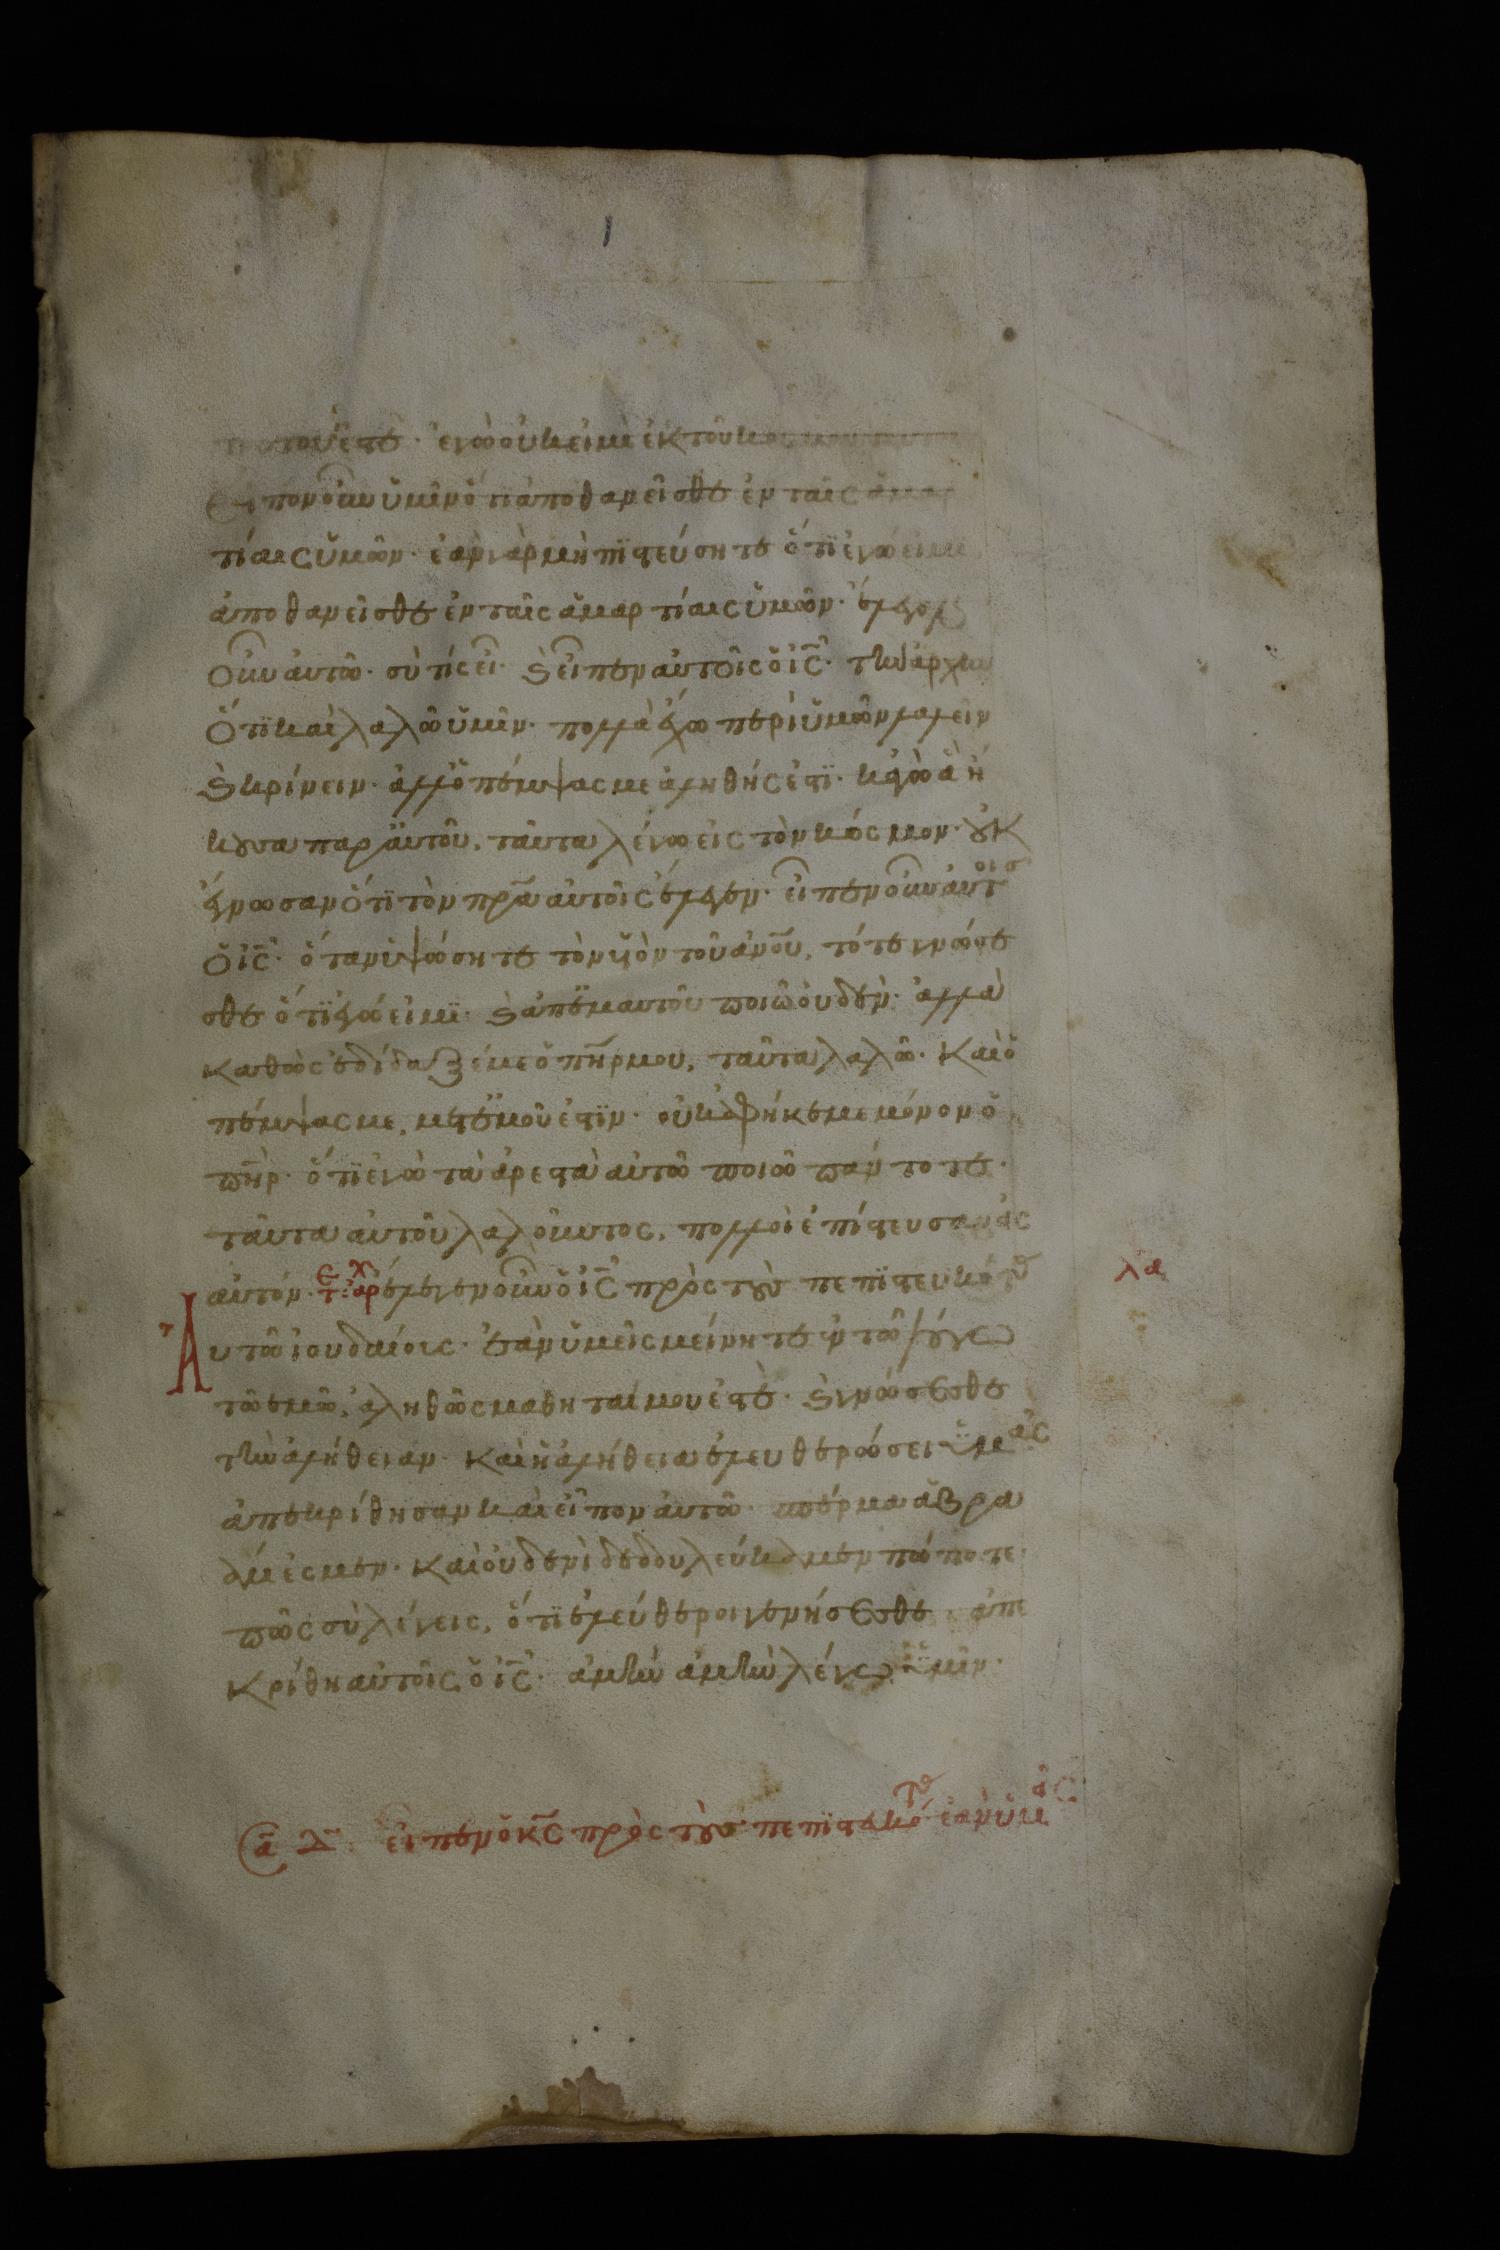 τούτου ἐστέ· ἐγὼ οὐκ εἰμὶ ἐκ τοῦ κοσμου τουτου
εἶπον οὖν ὑμῖν ὅτι ἀποθανεῖσθε ἐν ταῖς ἁμαρ
τίαις ὑμῶν· ἐὰν γὰρ μὴ πιστεύσητε ὅτι ἐγώ εἰμι
ἀποθανεῖσθε ἐν ταῖς ἁμαρτίαις ὑμῶν· ἔλεγον
οὖν αὐτῶ· σὺ τίς εἶ· ϗ εἶπεν αὐτοῖς ὁ ις· τὴν ἀρχὴν
ὅτι καὶ λαλῶ ὑμῖν· πολλὰ ἔχω περὶ ὑμῶν λαλεῖν
ϗ κρίνειν· ἀλλ' ὁ πέμψας με ἀληθής ἐστι· κἀγὼ ἃ ἤ
κουσα παρ' αὐτοῦ, ταῦτα λέγω εἰς τὸν κόσμον· οὐκ
ἔγνωσαν ὅτι τὸν πρα αὐτοῖς ἔλεγεν· εἶπεν οὖν αὐτοῖς
ὁ ις· ὅταν ὑψώσητε τὸν υἱὸν τοῦ ανου, τότε γνώσε
σθε ὅτι ἐγώ εἰμι· ϗ ἀπ' ἐμαυτοῦ ποιῶ οὐδέν· ἀλλὰ
καθὼς ἐδίδαξέ με ὁ πηρ μου, ταῦτα λαλῶ· καὶ ὁ
πέμψας με, μετ' ἐμοῦ ἐστιν· οὐκ ἀφῆκέ με μόνον ὁ
πηρ· ὅτι ἐγὼ τὰ ἀρεστὰ αὐτῶ ποιῶ πάντοτε·
ταῦτα αὐτοῦ λαλοῦντος, πολλοὶ ἐπίστευσαν εἰς
αὐτόν· τε αρχ ἔλεγεν οὖν ὁ ις πρὸς τοὺς πεπιστευκότας
λα
Αυτῶ ἰουδαίους· ἐὰν ὑμεῖς μείνητε ἐν τῶ λόγω
τῶ ἐμῶ, ἀληθῶς μαθηταί μου ἐστέ· ϗ γνώσεσθε
τὴν ἀλήθειαν· καὶ ἡ ἀλήθεια ἐλευθερώσει ὑμᾶς
ἀπεκρίθησαν καὶ εἶπον αὐτῶ· σπέρμα ἁβρα
άμ ἐσμεν· καὶ οὐδενὶ δεδουλεύκαμεν πώποτε·
πῶς σὺ λέγεις, ὅτι ἐλεύθεροι γενήσεσθε ἀπε
κρίθη αὐτοῖς ὁ ις· ἀμὴν ἀμὴν λέγω ὑμῖν·
εἶπεν ὁ κς πρὸς τοὺς πεπιστευκότας ἐὰν ὑμεῖς